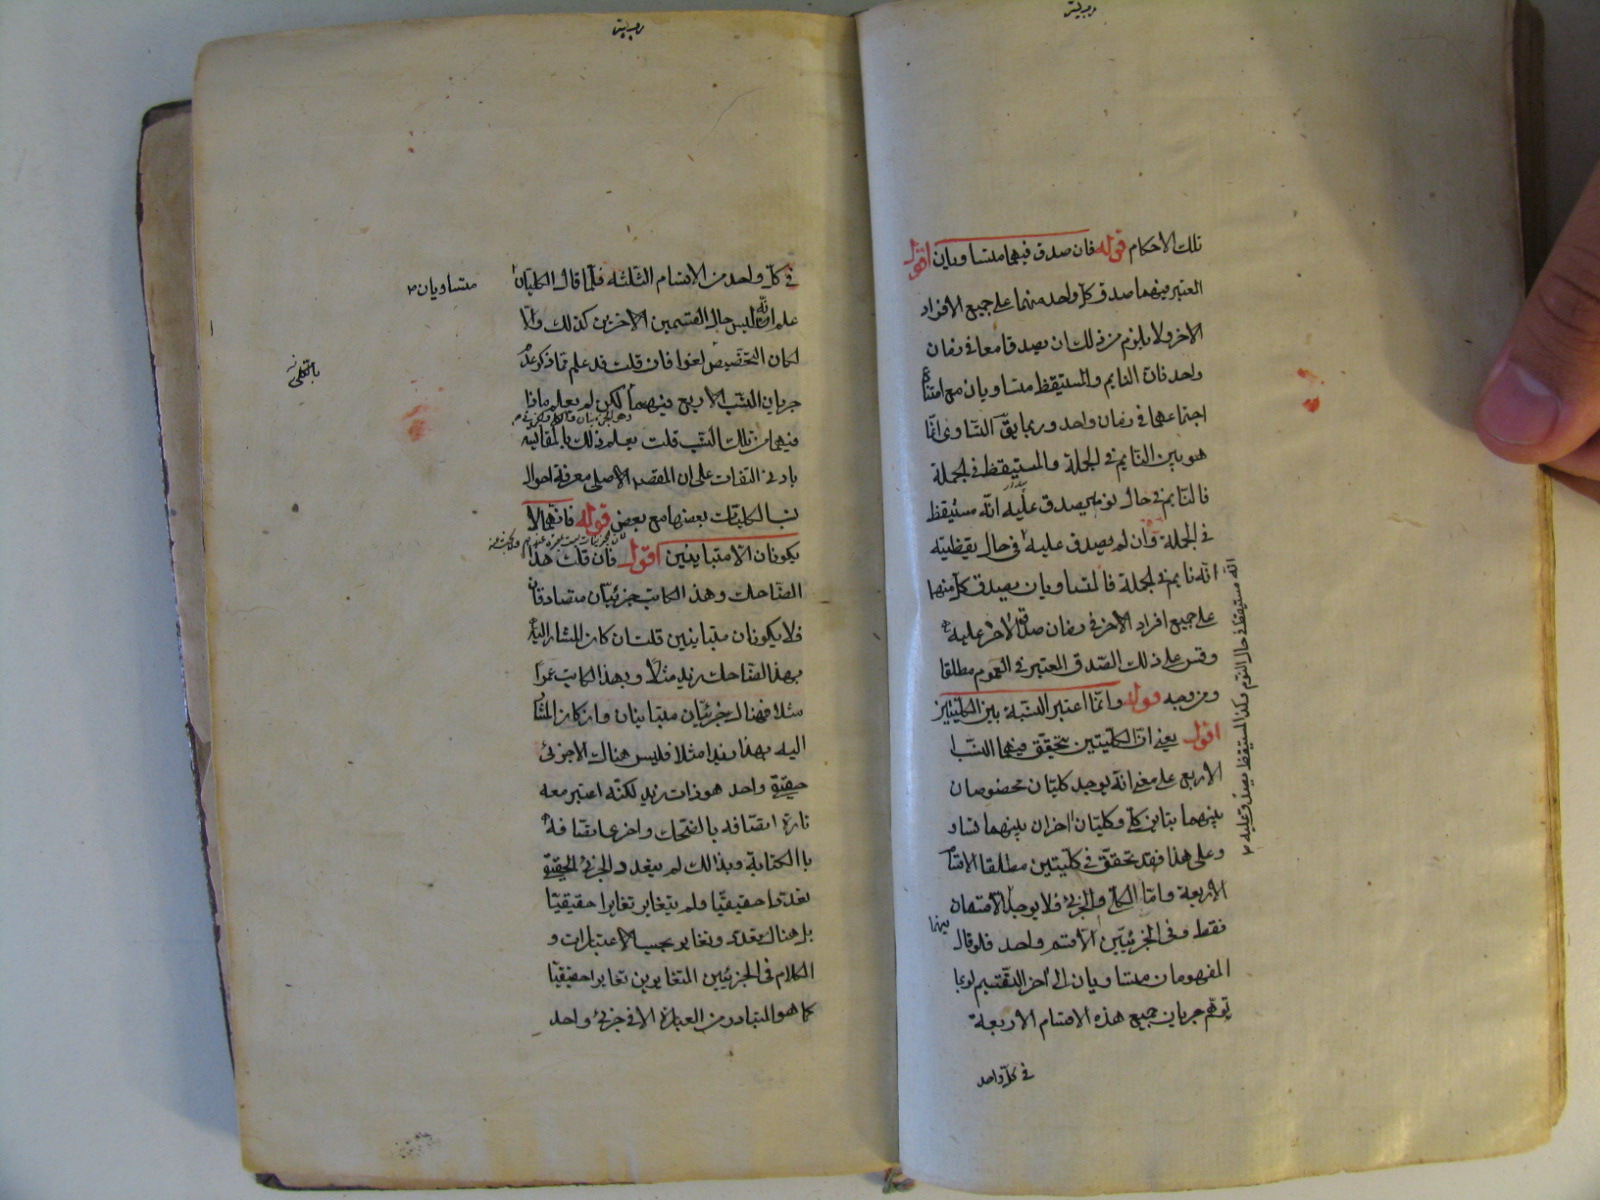 تلك الاحكام قوله فان صدق فيهما متساويان اقول
المعتبر فيهما صدق كل واحد منهما على جميع الافراد
الاخر ولا يلزم من ذلك ان يصدقا معا في زمان
واحد فان النايم والمستيقظ متساويان مع امتناع
اجتماعهما في زمان واحد وربما يق التساوى انما
هو بين النايم في الجملة والمستيقظ في الجملة
فالنايم في حال نومه يصدق عليه انه مستيقظ
في الجملة وان لم يصدق عليه في حال يقظيته
انه نايم في الجملة فالمتساويان يصدق كل منهما
على جميع افراد الاخر في زمان صدق الاخر عليه
وقس على ذلك الصدق المعتبر في العموم مطلقا
ومن وجه قوله وانما اعتبر النسبة بين الكليتين
اقول يعني ان الكليتين يتحقق فيهما النسب
الاربع على معنى انه يوجد كليتان مخصوصان
بينهما تباين كلي وكليتان اخران بينهما تساو
وعلى هذا فقد تحقق في كليتين مطلقا الاقسام
الاربعة واما الكلي والجزئي فلا يوجد الا قسمان
بينهما
فقط وفي الجزئيين الا قسم واحد فلو قال
المفهومان متساويان الى اخر التقسيم لربما
توهم جريان جميع هذه الاقسام الاربعة
في كل واحد
انه مستيقظ في حال النوم وكذا المستيقظ يصدق عليه
في كل واحد من الاقسام الثلثة فلما قال الكليتان
متساويان
علم انه ليس حال القسمين الاخرين كذلك والا
لكان التخصيص لغوا فان قلت قد علم مما ذكر عدم
جريان النسب الاربع فيهما لكن لم يعلم ماذا
فيهما من تلك النسب قلت يعلم ذلك بالمقايسة
بادنى التفات على ان المقصد الاصلي معرفة احوال
نسب الكليات بعضها مع بعض قوله فانهما لا
يكونان الا متباينين اقول فان قلت هذا
الضاحك وهذا الكاتب جزئيان متصادقان
فلا يكونان متباينين قلت ان كان المشار اليه
بهذا الضاحك زيد مثلا وبهذا الكاتب عمرا
مثلا فهناك جزئيان متباينان وان كان المشار
اليه بهما زيدا مثلا فليس هناك الا جزئي
حقيقي واحد هو ذات زيد لكنه اعتبر معه
تارة اتصافه بالضحك واخرى اتصافه
بالكتابة وبذالك لم يتعدد الجزئي الحقيقي
تعددا حقيقيا ولم يتغاير تغايرا حقيقيا
بل هناك تعدد وتغاير بحسب الاعتبارات و
الكلام في الجزئيين المتغايرين تغايرا حقيقيا
كما هو المتبادر من العبارة الا في جزئي واحد